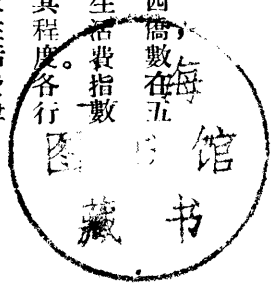 西僑數在五
生活費指數
其程度。各行
海
图 馆
藏 书